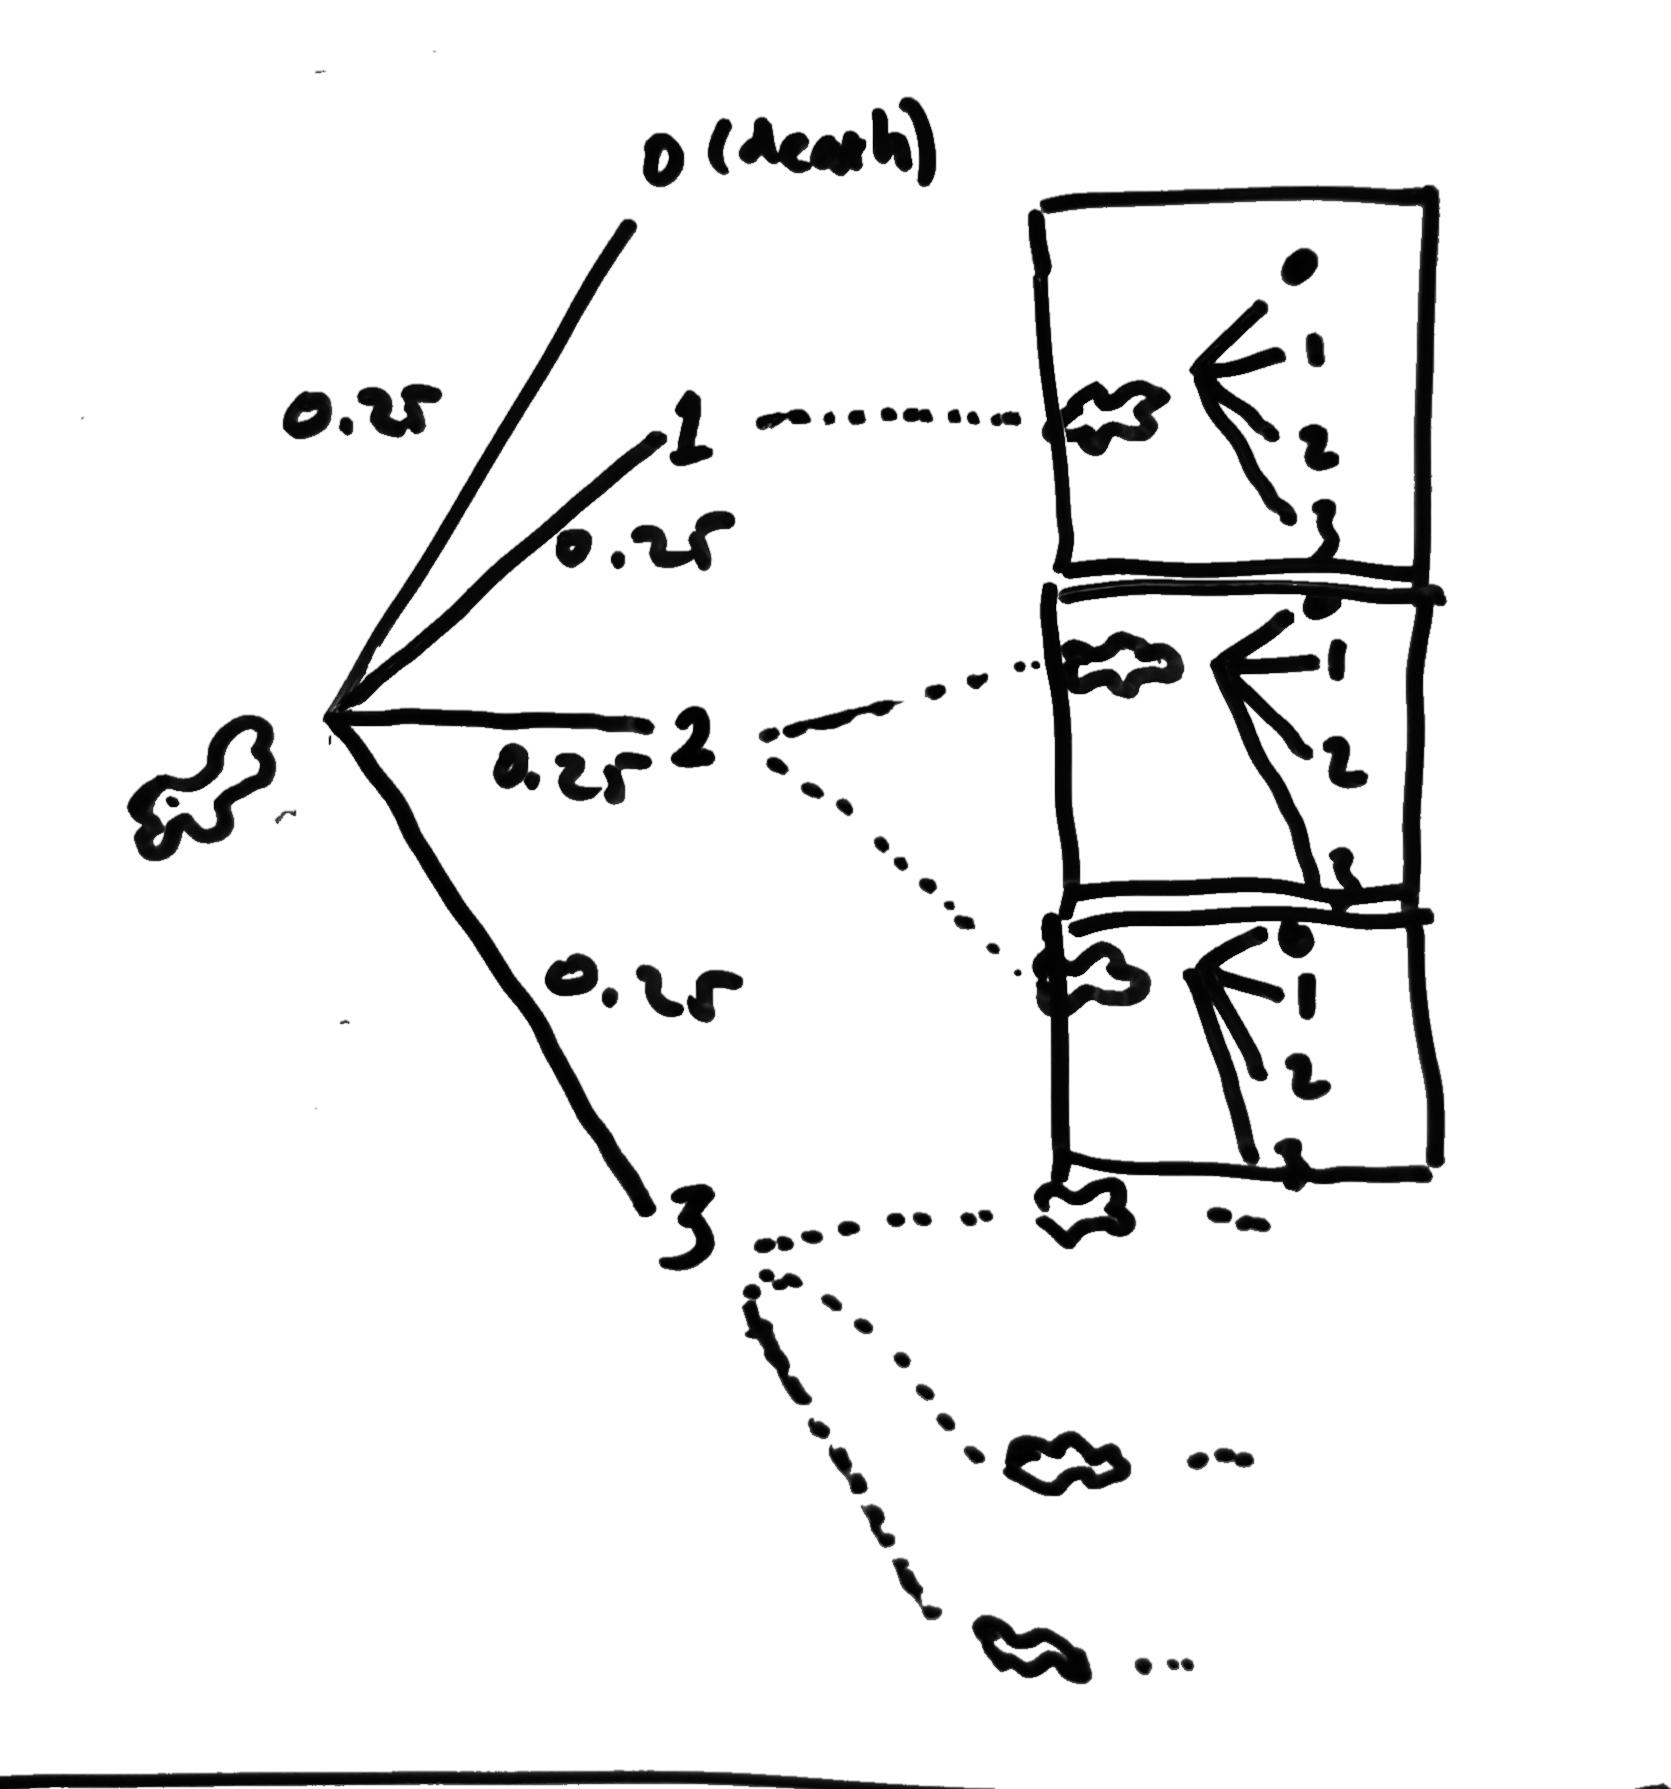 0 (death)
0.25
1
0.25
2
0.25
3
0.25
0
1
2
3
0
1
2
3
0
1
2
3